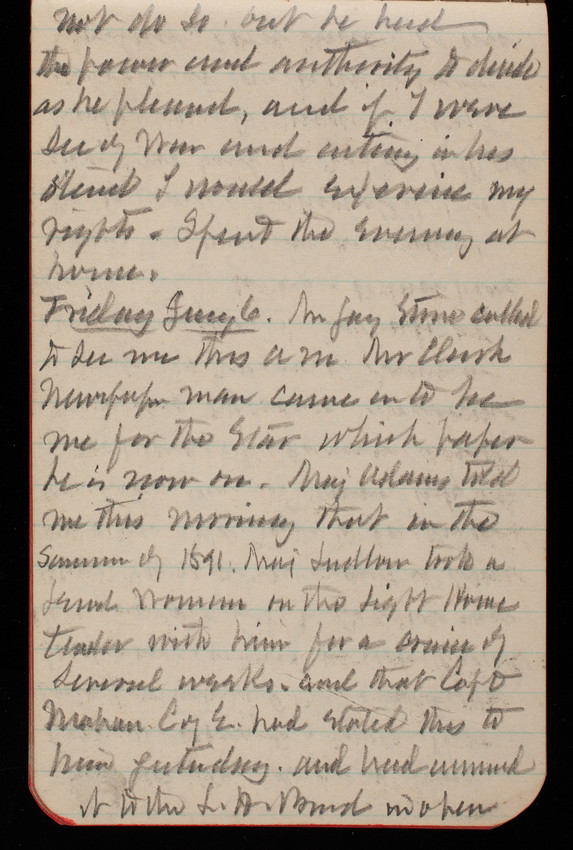 not do so. but he had
the power and authority to decide
as he pleased, and if I were
Sec of War and acting in his
stead I would exercise my
rights. Spent the evening at
home.
Friday Jany 6. Mr Jay Stone called
to see me this a m. Mr Clark
Newspaper man came in to see
me for the Star which paper
he is now on. Maj Adams told
me this morning that in the
Summer of 1891. Maj Ludlow took a
lewd woman on the Light House
tender with him for a cruise of
several weeks. and that Capt
Mahan C of E. had stated this to
him yesterday. and had
it to the L. H. Board in open